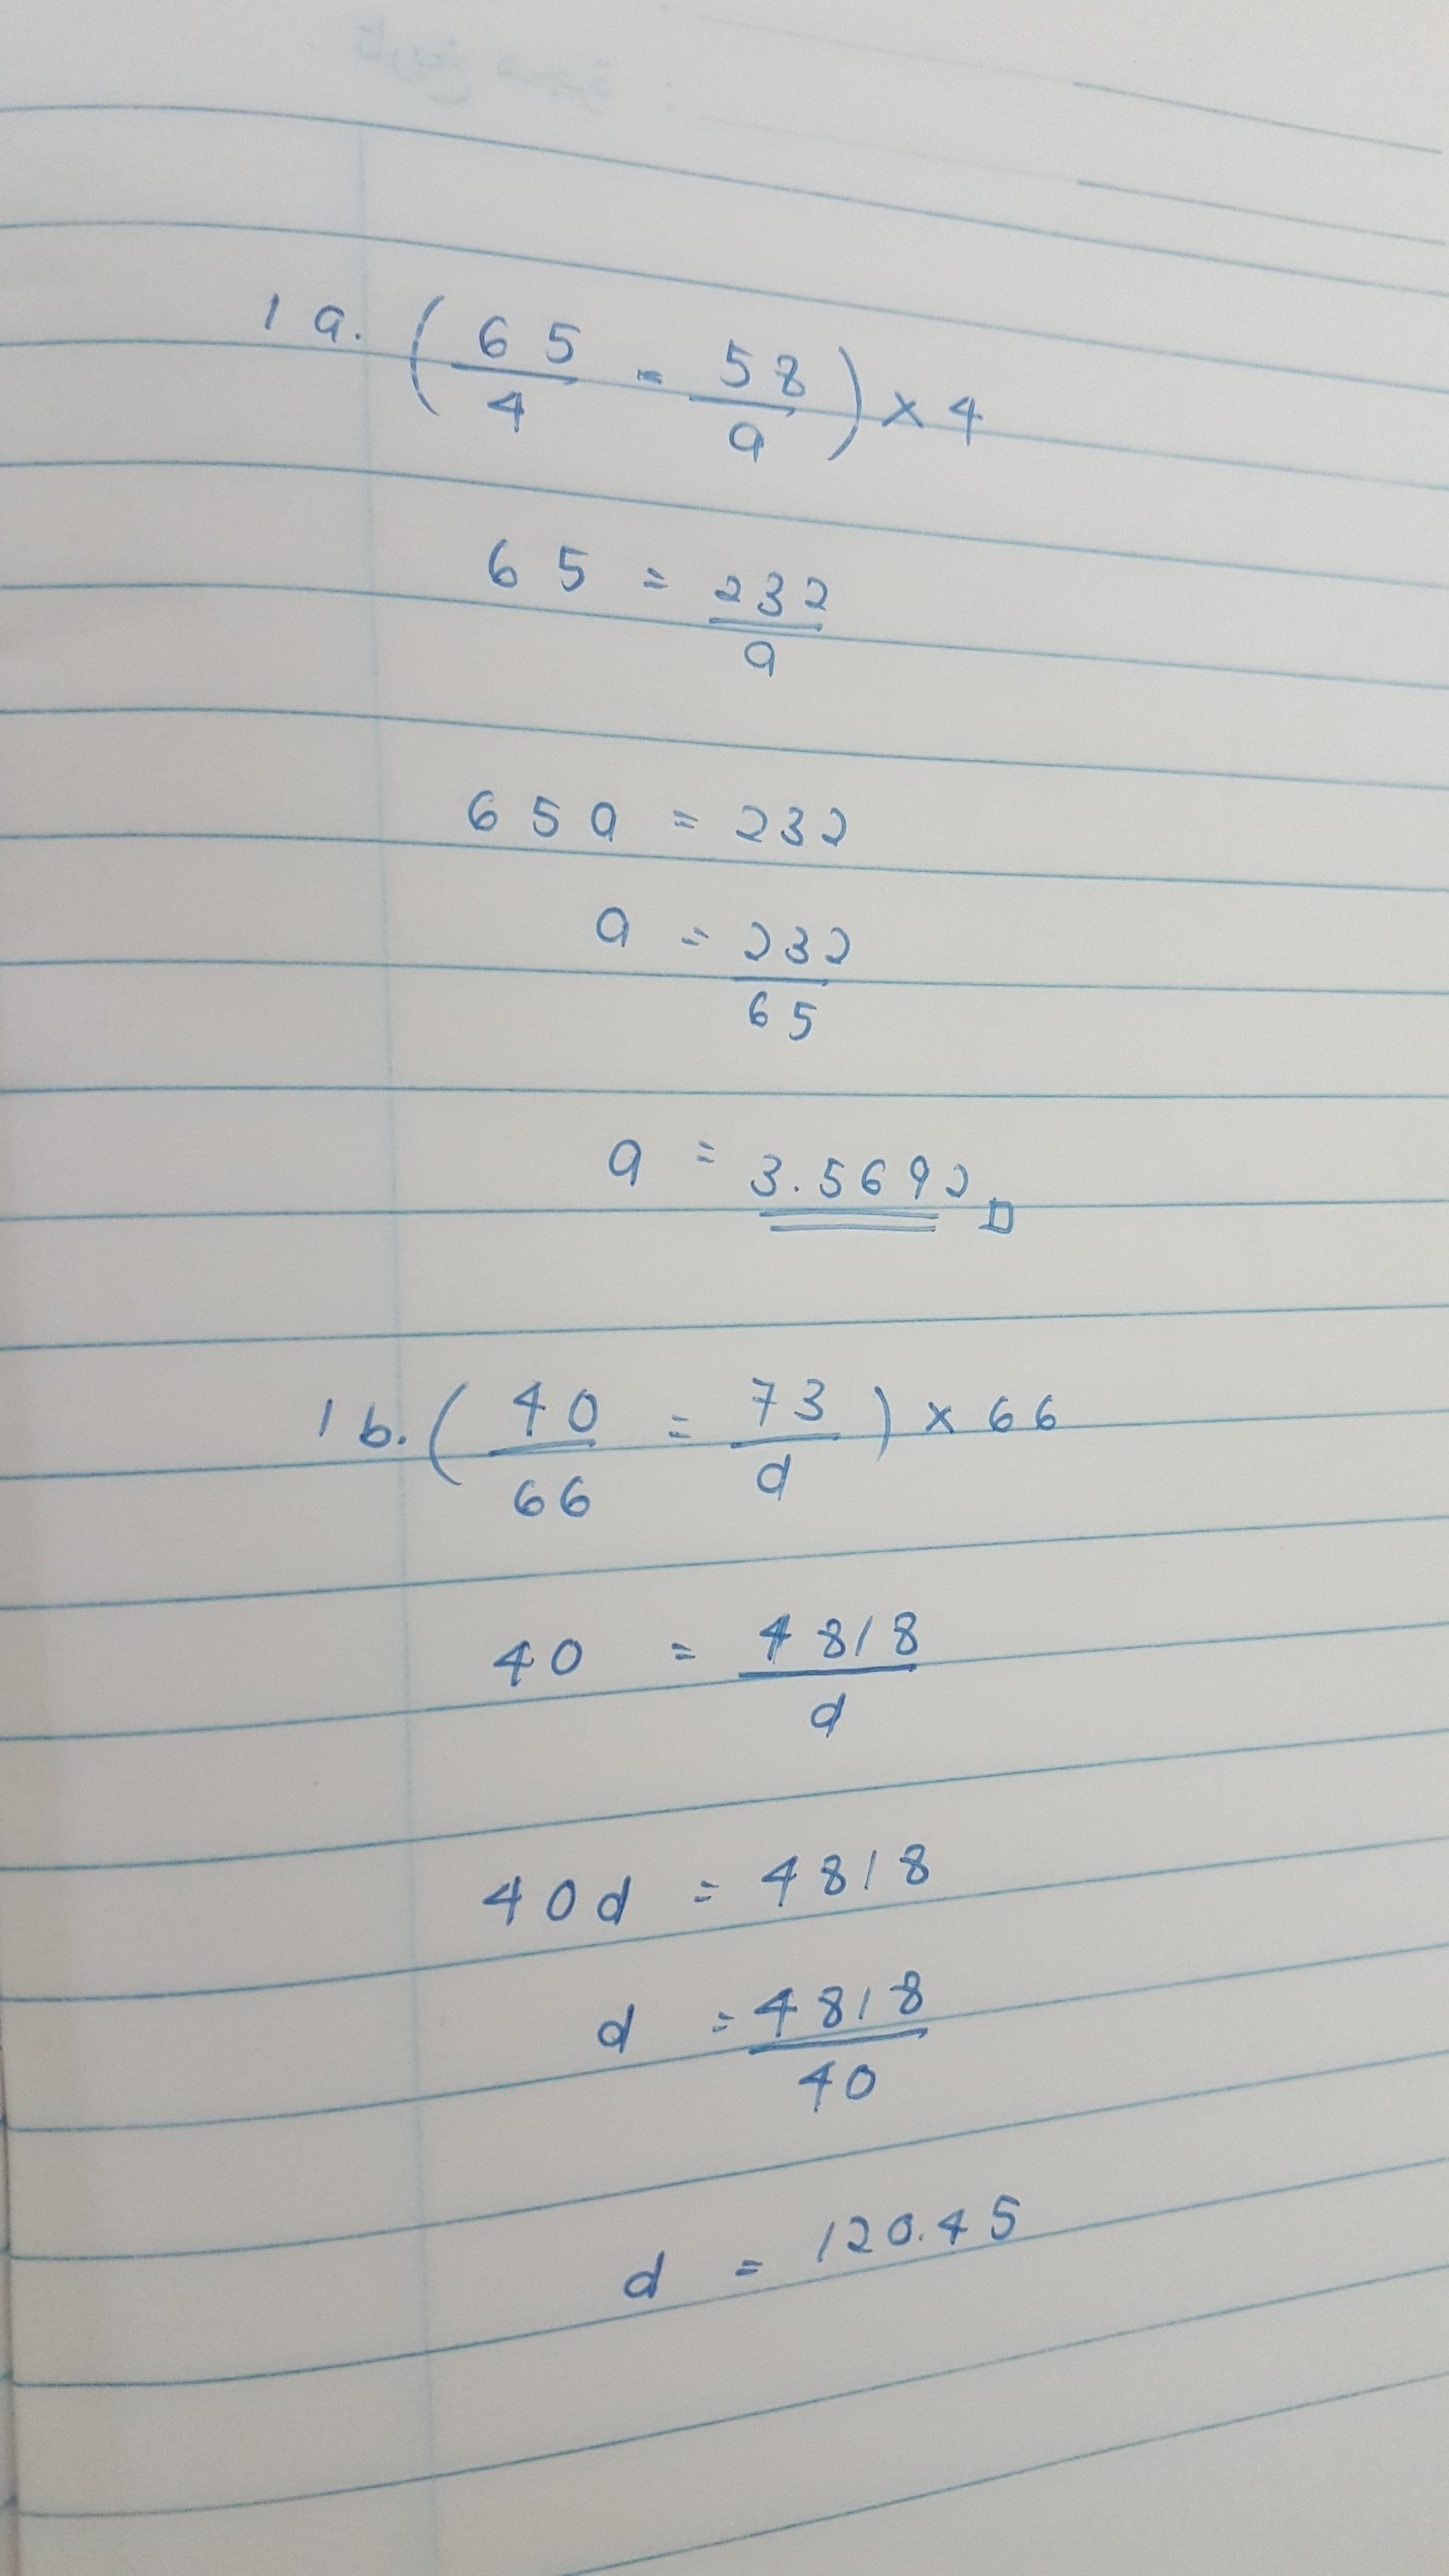 تاريخ هجرة :
1 a. (65/4 = 58/a) × 4
65 = 232/a
65a = 232
a = 232/65
a = 3.5692
1 b. (40/66 = 73/d) × 66
40 = 4818/d
40d = 4818
d = 4818/40
d = 120.45